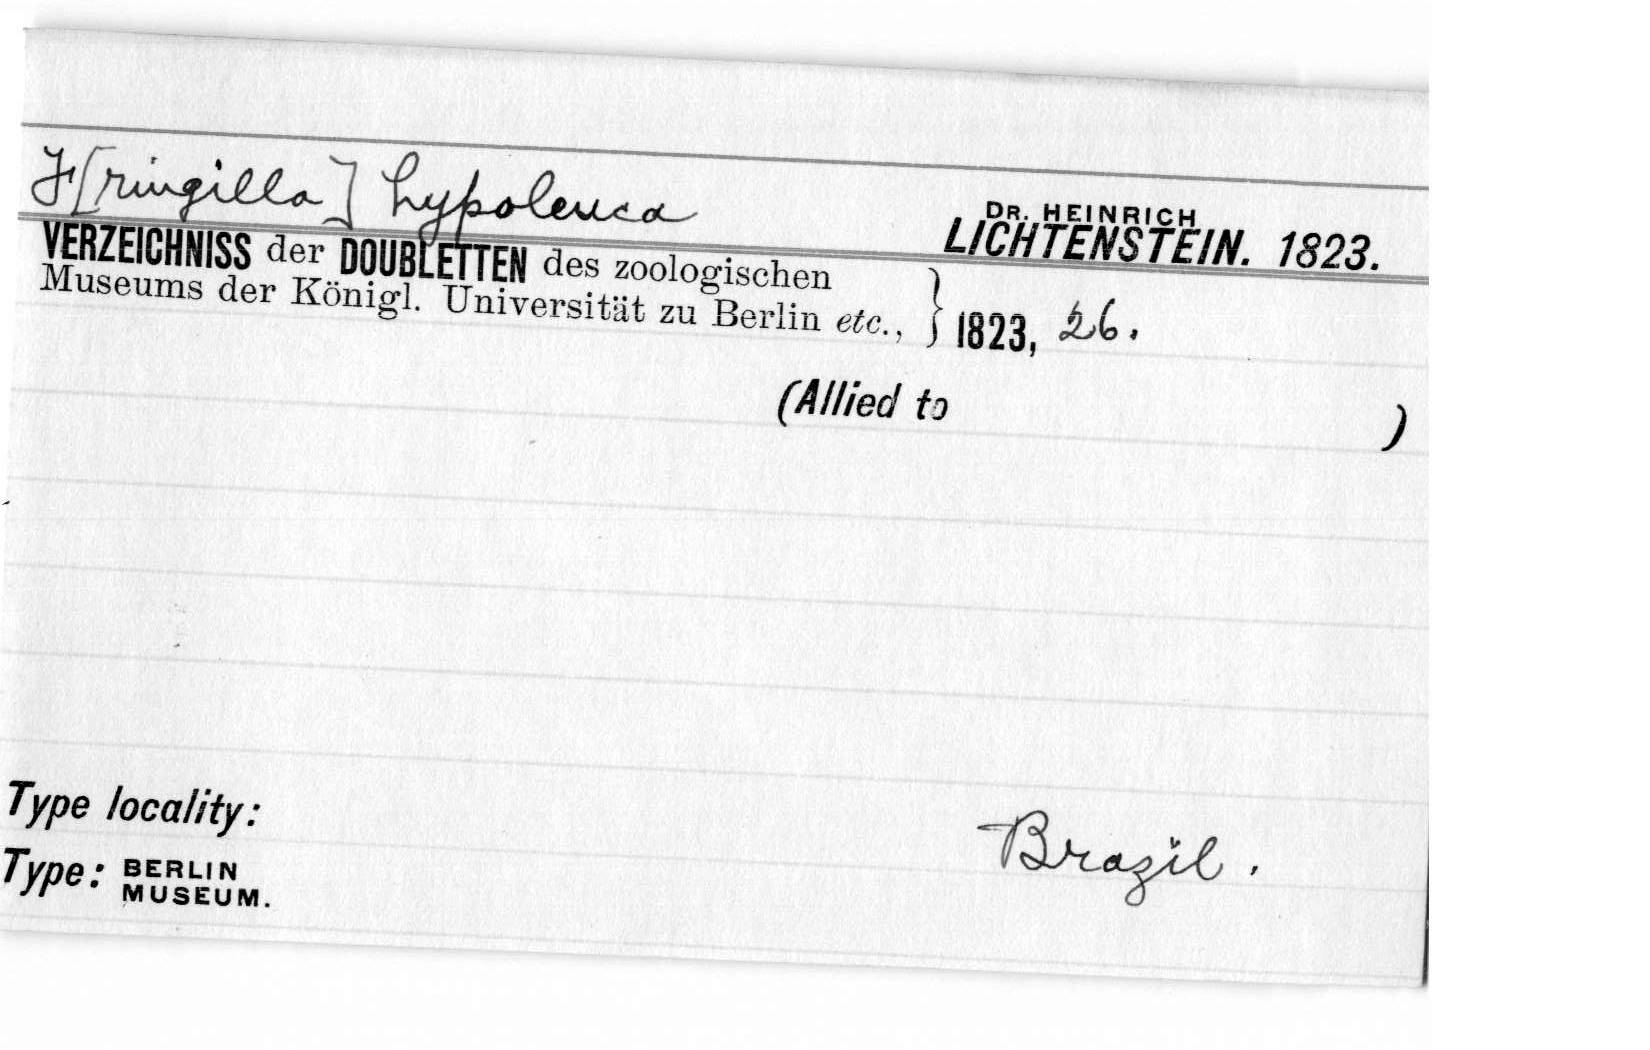 F[ringilla] hypoleuca
DR. HEINRICH
LICHTENSTEIN. 1823.
VERZEICHNISS der DOUBLETTEN des zoologischen
Museums der Königl. Universität zu Berlin etc., } 1823, 26.
(Allied to )
Type locality: Brazil.
Type: BERLIN
MUSEUM.